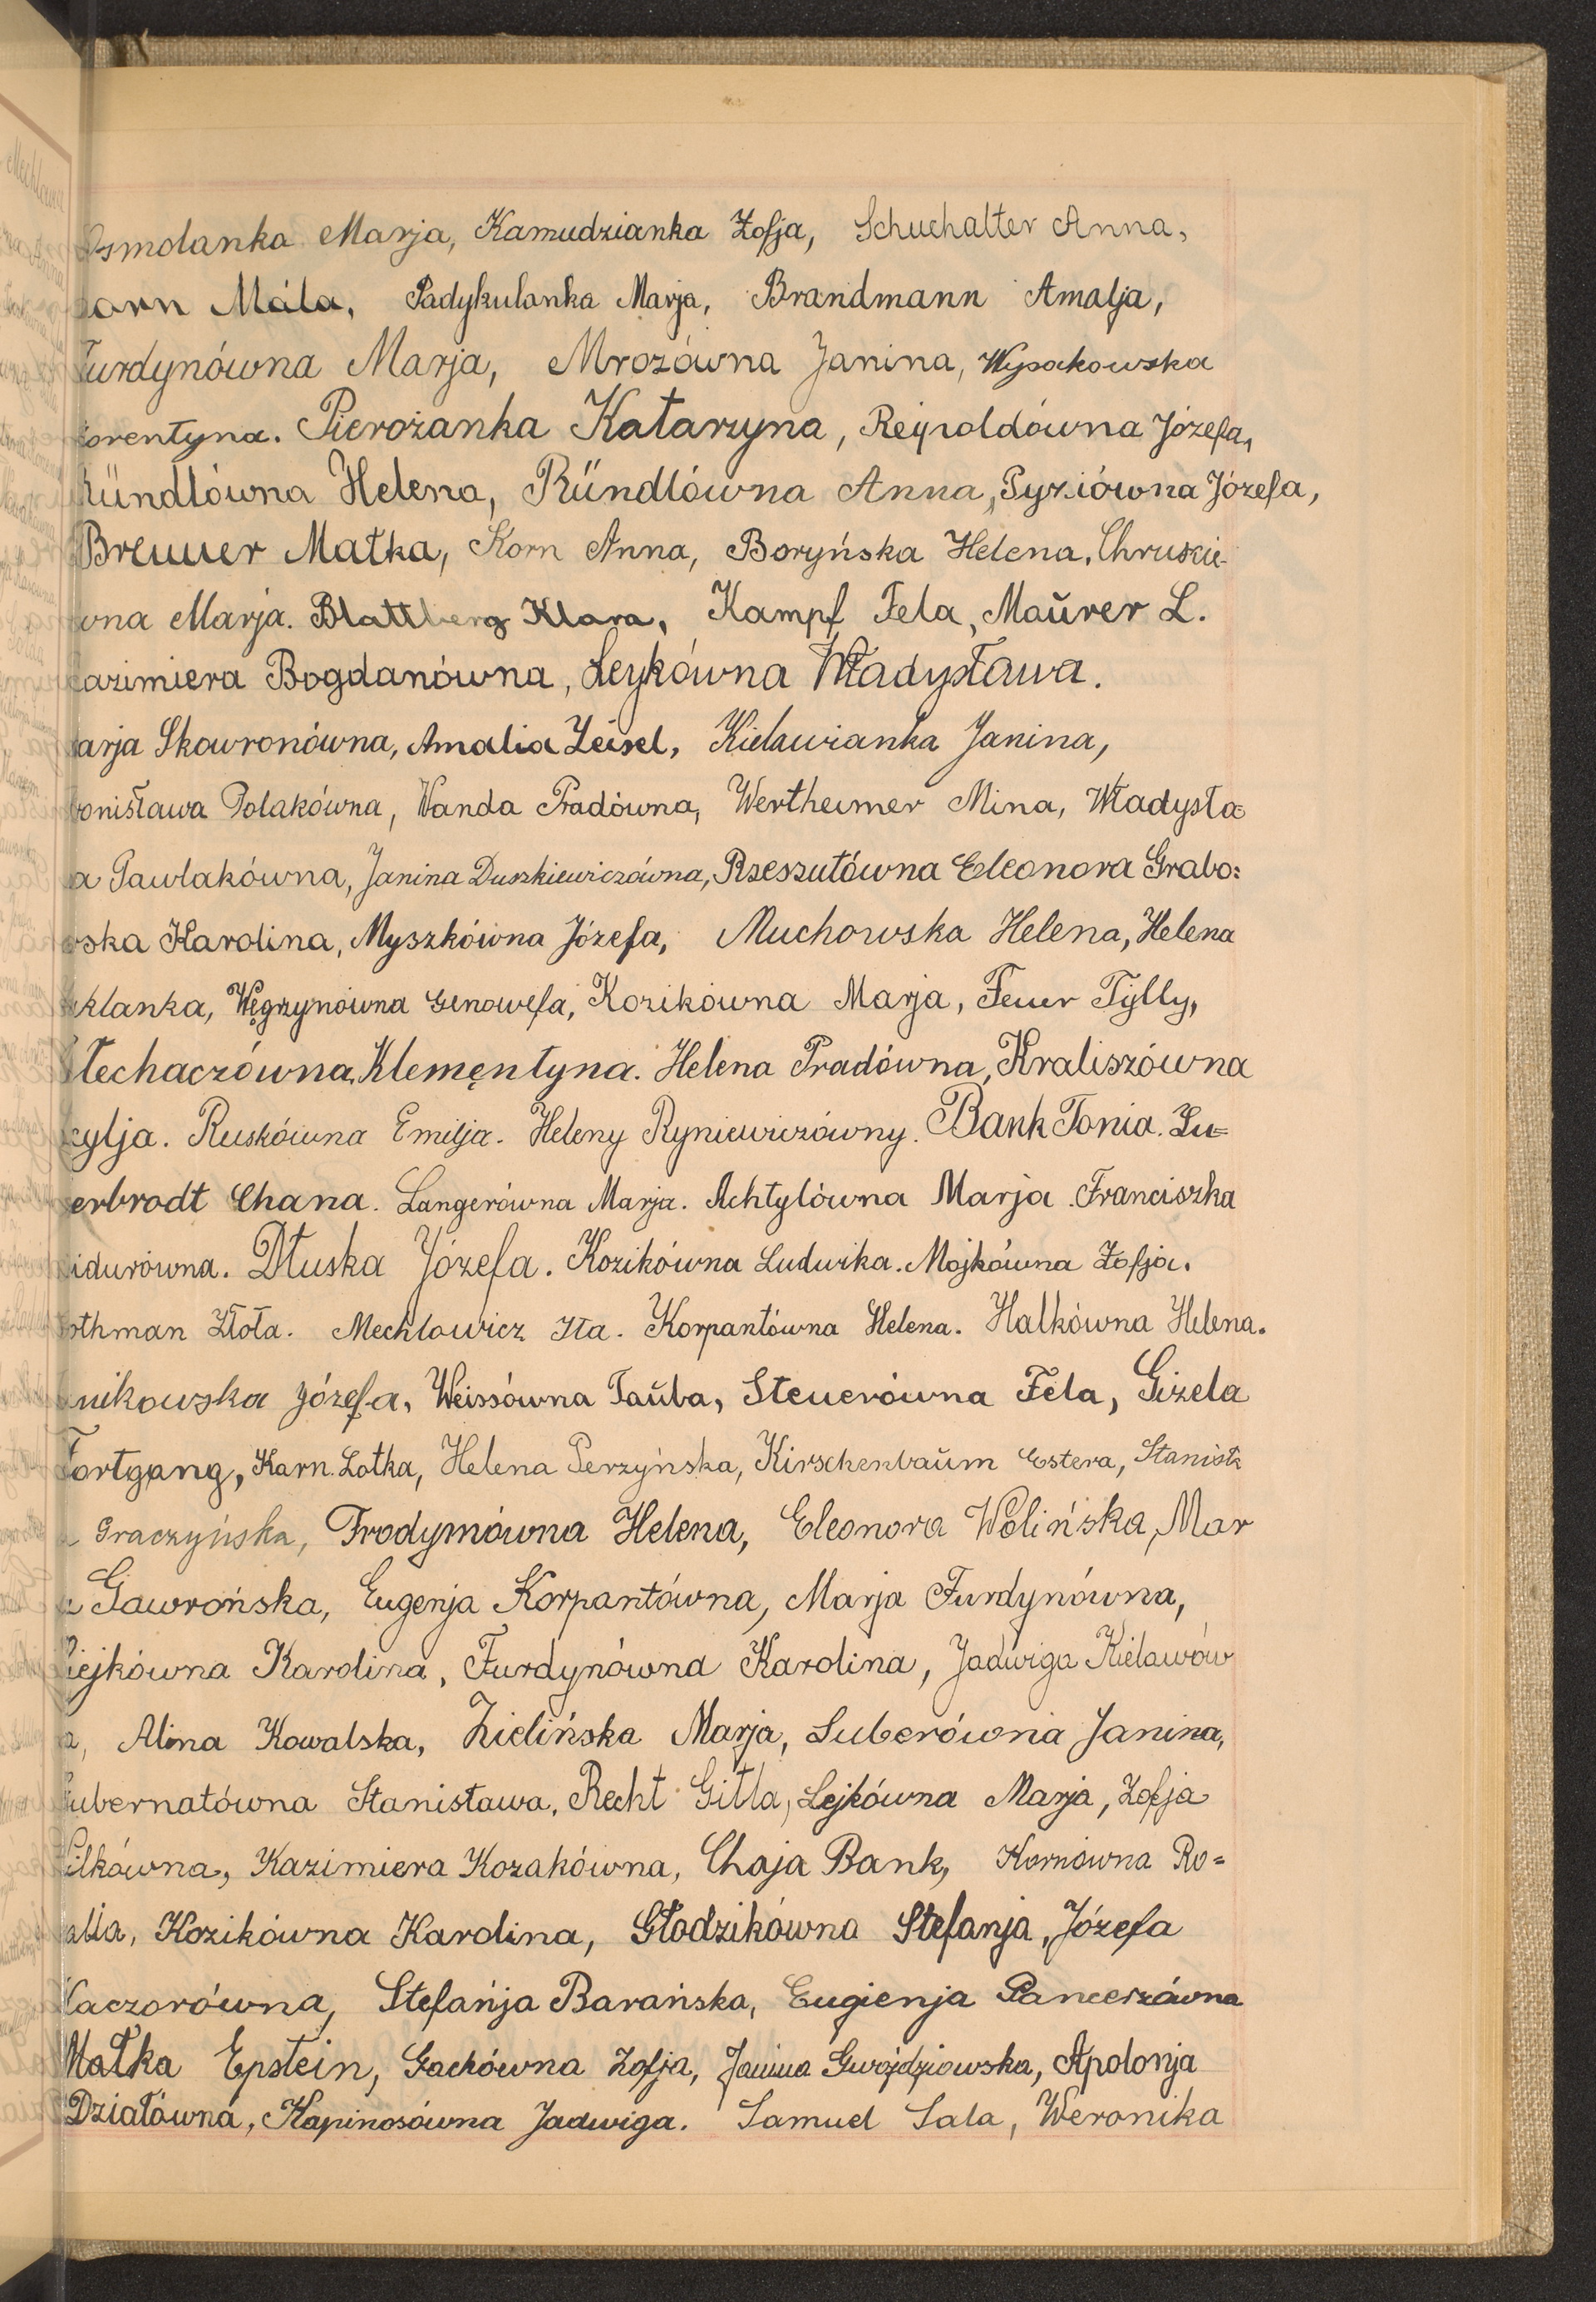 Osmolanka Marja, Kamudzianka Zofja, Schuchalter Anna,
Mála, Padykulanka Marja, Brandmann Amalja,
Furdynówna Marja, Mrozówna Janina, Wysakowska
orentyna. Pierożanka Katarzyna, Rejpoldówna Józefa,
Ründlówna Helena, Ründlówna Anna, Pyziówna Józefa,
Breuuer Małka, Korn Anna, Boryńska Helena, Chruście-
wna Marja. Blattberg Klara, Kampf Fela, Maŭrer L.
azimiera Bogdanówna, Leykówna Władysława.
arja Skowronówna, Amalia Zeisel, Kielawianka Janina,
onisława Polakówna, Wanda Pradówna, Wertheimer Mina, Władysła=
a Pawlakówna, Janina Duszkiewiczówna, Rzeszutówna Eleonora Grabo=
wska Karolina, Myszkówna Józefa, Muchowska Helena, Helena
klanka, Węgrzynówna Genowefa, Kozikówna Marja, Feuer Tylly,
Stechaczówna Klemęntyna. Helena Pradówna, Kraliszówna
cylja. Ruskówna Emilja. Heleny Ryniewiczówny. Bank Tonia. Zu=
erbrodt Chana. Langerówna Marja. Achtylówna Marja. Franciszka
idurówna. Dłuska Józefa. Kozikówna Ludwika. Mojkówna Zofja.
othman Złota. Mechlowicz Ita. Korpantówna Helena. Halkówna Helena.
nikowska Józefa, Weissówna Taŭba, Steuerówna Fela, Gizela
Fortgang, Karn Lotka, Helena Perzyńska, Kirschenbaŭm Estera, Stanisła
a Graczyńska, Frodymówna Helena, Eleonora Wolińska, Mar
a Gawrońska, Eugenja Korpantówna, Marja Furdynówna,
iejkówna Karolina, Furdynówna Karolina, Jadwiga Kielawów
a, Alina Kowalska, Zielińska Marja, Luberówna Janina,
ubernatówna Stanisława, Recht Gitla, Lejkówna Marja, Zofja
ilkówna, Kazimiera Kozakówna, Chaja Bank, Kornówna Ro=
alia, Kozikówna Karolina, Głodzikówna Stefanja, Józefa
Kaczorówna, Stefańja Barańska, Eugienja Pancerzówna
Małka Epstein, Gackówna Zofja, Janina Gwoździowska, Apolonja
Działówna, Kapinosówna Jadwiga. Samuel Sala, Weronika